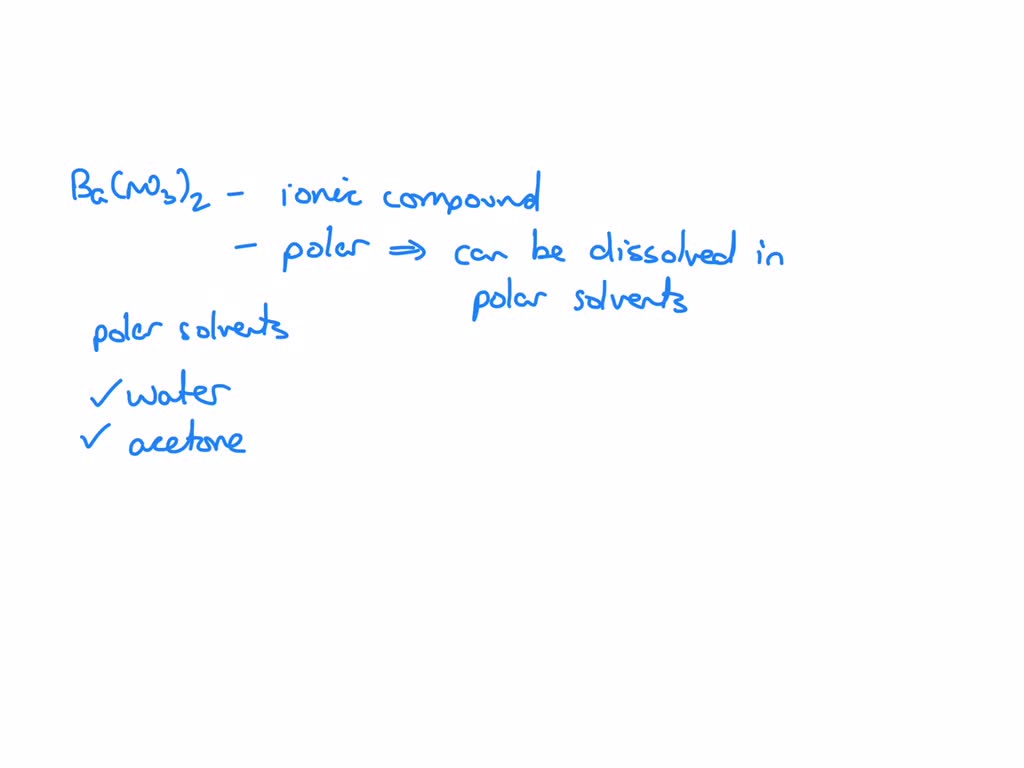 Ba(NO3)2 - ionic compound
- polar ⇒ can be dissolved in
polar solvents
polar solvents
✓ water
✓ acetone